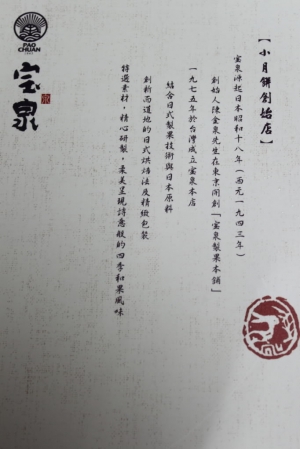 PAO CHUAN
宝泉
【小月餅創始店】
宝泉源起日本昭和十八年(西元一九四三年)
創始人陳金泉先生在東京開創「宝泉製菓本舖」
一九七五年於台灣成立宝泉本店
結合日式製菓技術與日本原料
創新而道地的日式烘焙法及精緻包裝
特選素材，精心研製，最美呈現詩意般的四季和菓風味